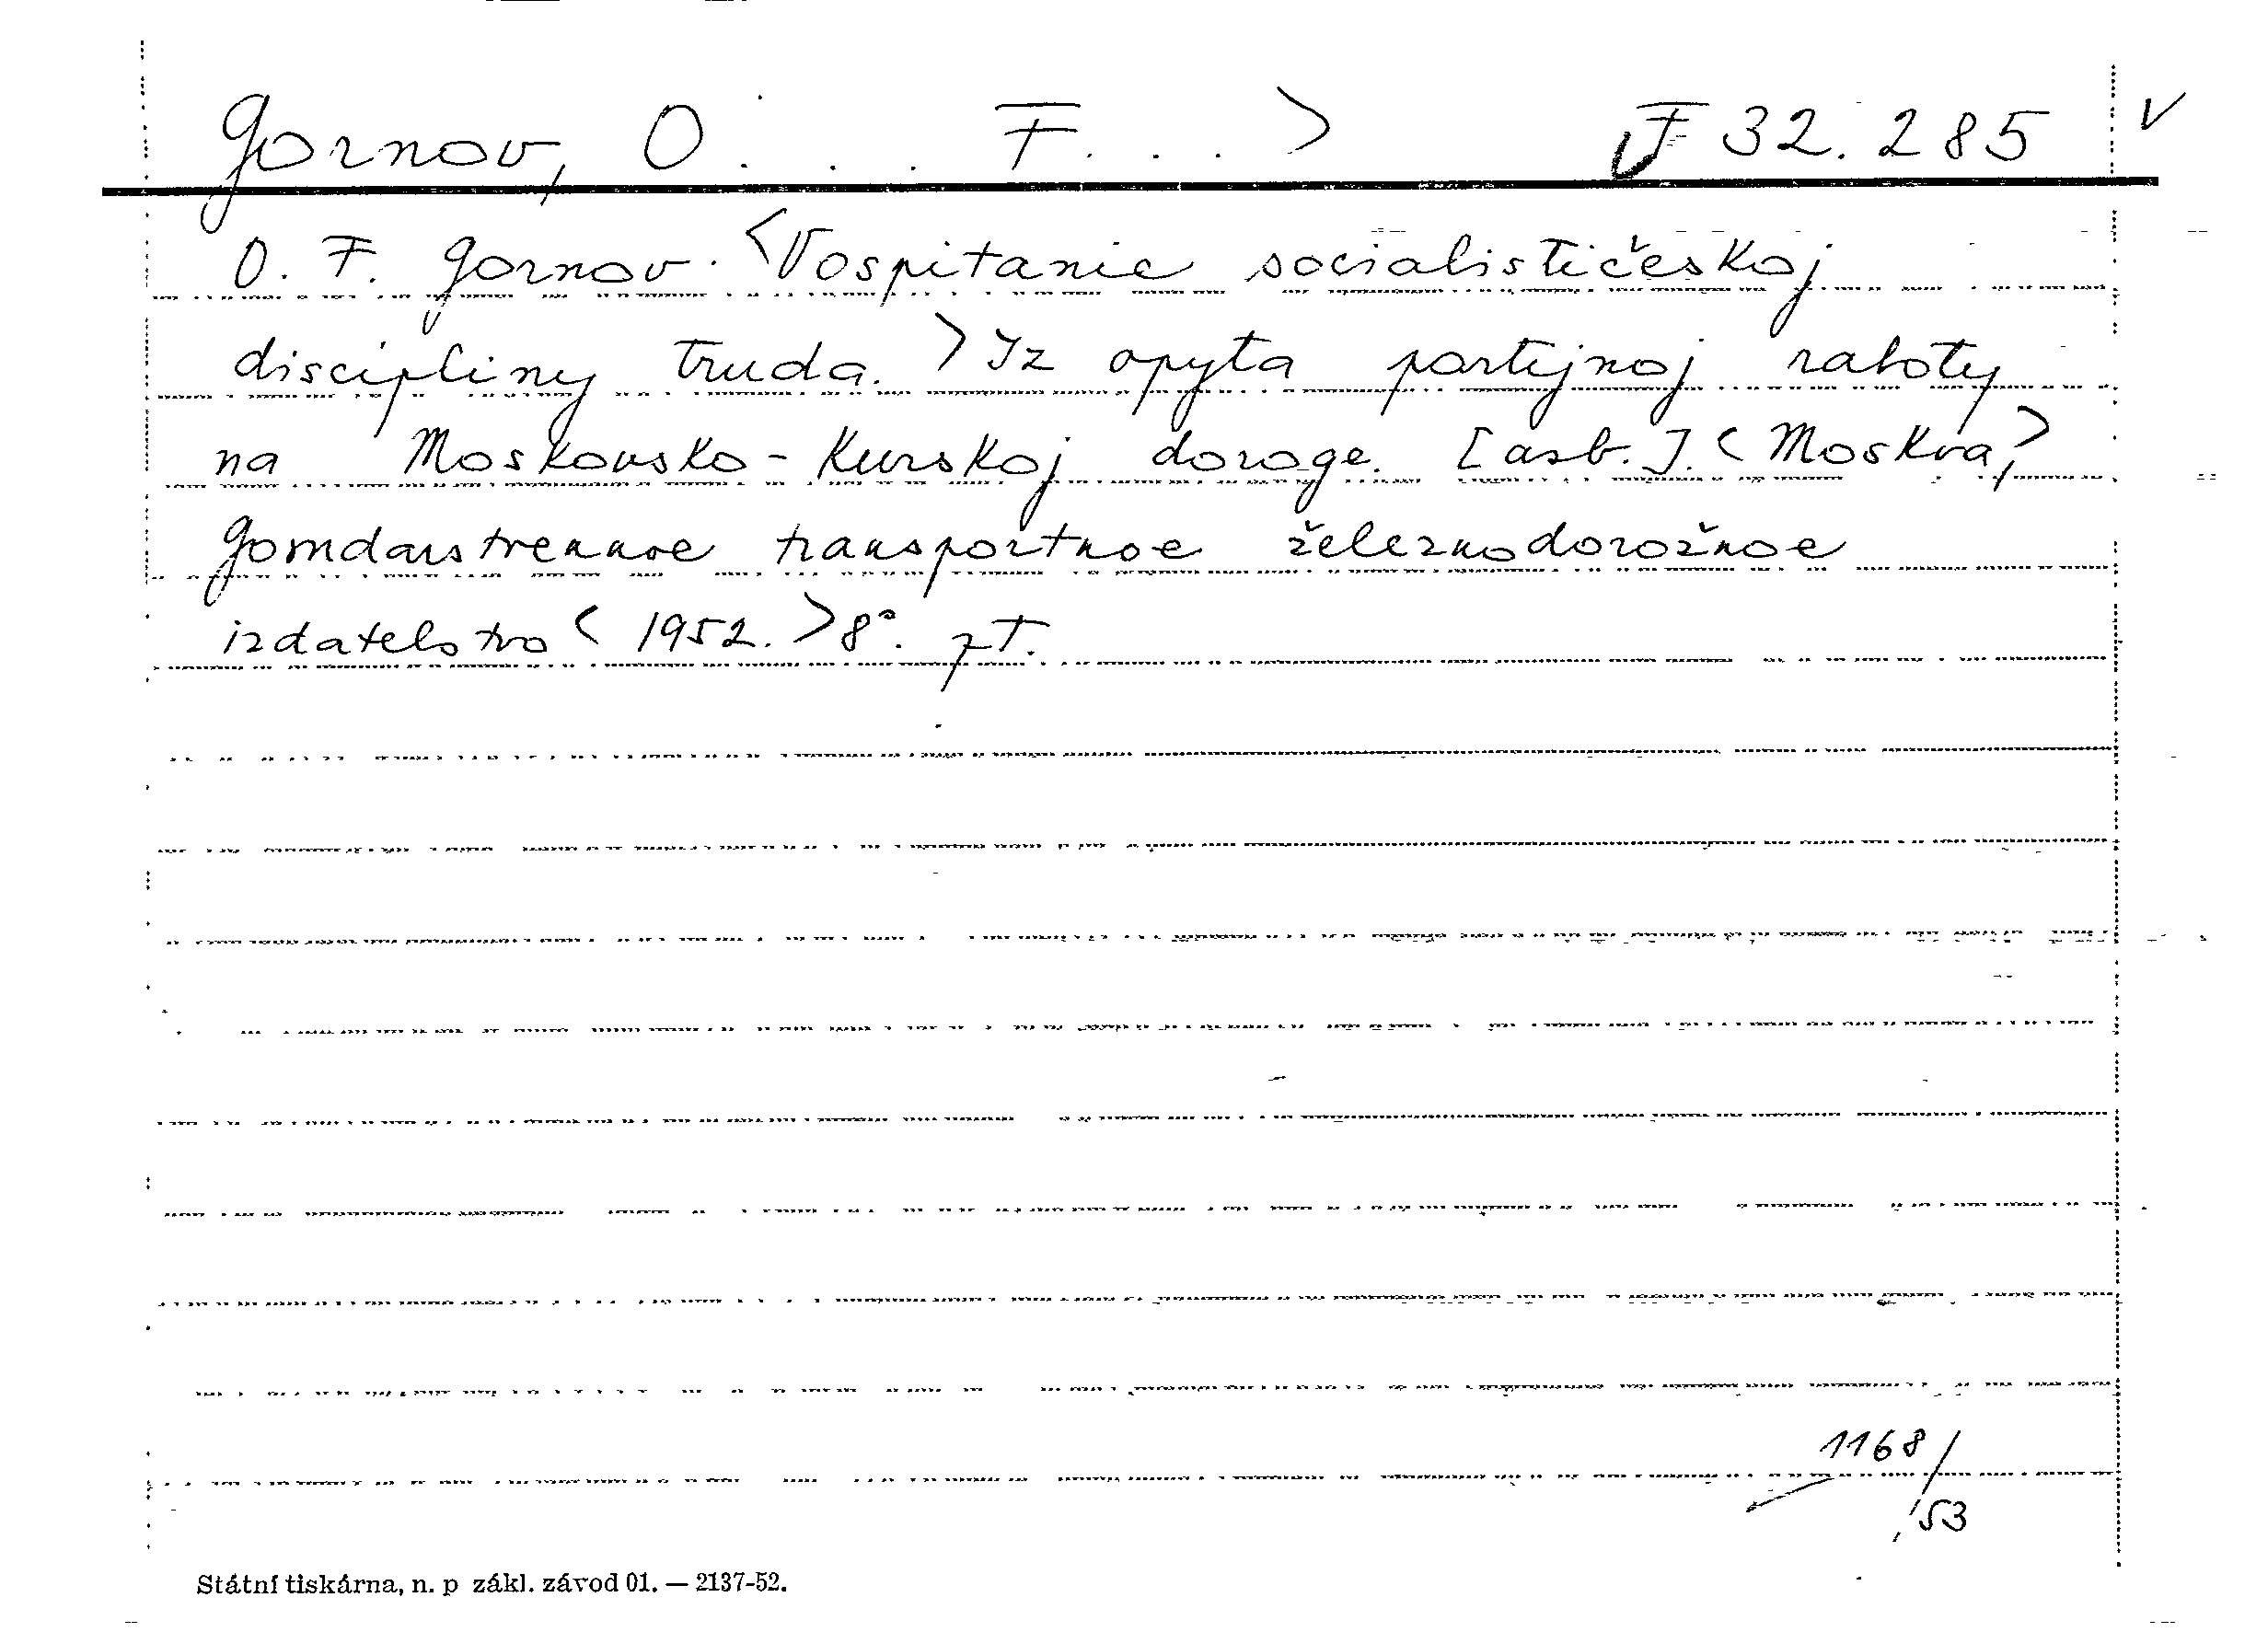 Gornov, O . . . F. . . > F 32.285 v
O. F. Gornov. <Vospitanie socialističeskoj
discipliny truda. > Iz opyta partijnoj raboty
na Moskovsko-Kurskoj doroge. [azb.]. <Moskva,>
Gosudarstvennoe transportnoe železnodorožnoe
izdatelstvo < 1952. > 8°. pT.
1168/
'53
Státní tiskárna, n. p zákl. závod 01. — 2137-52.